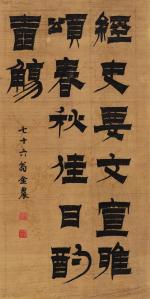 經史要文宣雅
頌春秋佳日酌
壺觴
七十六翁金農